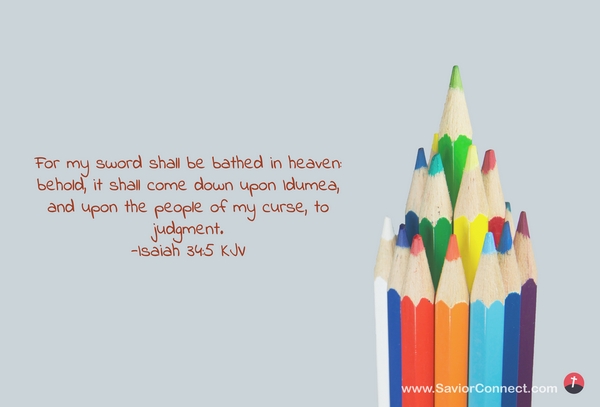 For my sword shall be bathed in heaven:
behold, it shall come down upon Idumea,
and upon the people of my curse, to
judgment.
-Isaiah 34:5 KJV
www.SaviorConnect.com